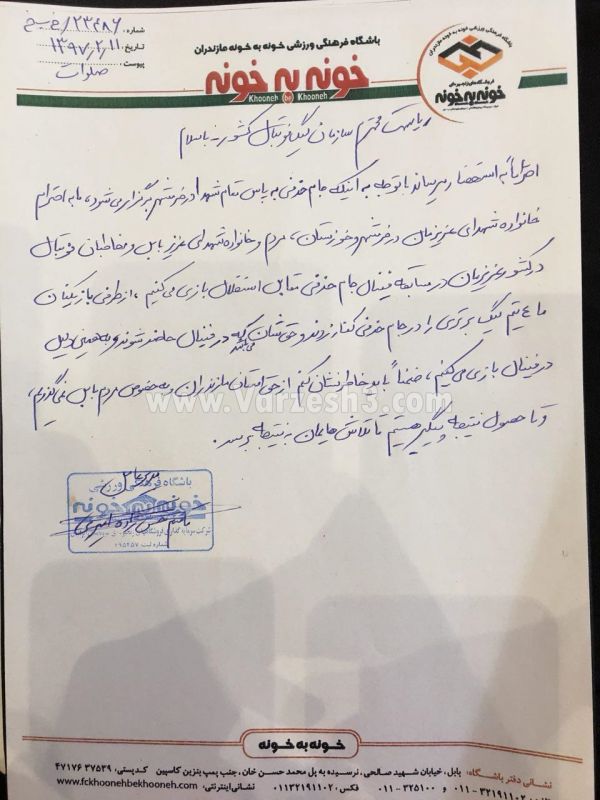 باشگاه فرهنگی ورزشی خونه به خونه مازندران
خونه به خونه
Khooneh be Khooneh
باشگاه فرهنگی ورزشی خونه به خونه مازندران
فروشگاه‌های زنجیره‌ای
خونه به خونه
شماره:
تاریخ: ۱۳۹۷,۲,۱۱
پیوست: صلوات
ریاست محترم سازمان لیگ فوتبال کشور - با سلام
احتراماً به استحضار میرساند با توجه به اینکه جام حذفی به پاس مقام شهدا در خرمشهر برگزار می شود، ما به احترام
خانواده شهدای عزیزمان در خرمشهر و خوزستان، مردم و خانواده شهدای عزیز بابل و مخاطبان فوتبال
در کشور عزیزمان در مسابقه فینال جام حذفی مقابل استقلال بازی می کنیم، از طرفی بازیکنان
ما ۴ تیم لیگ برتری را در جام حذفی کنار زدند و حقشان می باشد که در فینال حاضر شوند و به همین دلیل
در فینال بازی می کنیم، ضمناً باید خاطرنشان کنم از حق استان مازندران و به خصوص مردم بابل نمی گذریم،
و تا حصول نتیجه پیگیر هستیم تا تلاش هایمان به نتیجه برسد.
www.Varzesh3.com
مدیرعامل
باشگاه فرهنگی ورزشی
خونه به خونه
شماره ثبت: ۱۹۵۴۵۷
خونه به خونه
نشانی دفتر باشگاه: بابل، خیابان شهید صالحی، نرسیده به پل محمد حسن خان، جنب پمپ بنزین کاسپین کدپستی: ۳۷۵۳۹ ۴۷۱۷۶
۰۱۱-۳۲۱۹۱۱۰۲ و ۳۲۵۱۰۰-۰۱۱ فکس: ۰۱۱۳۲۱۹۱۱۰۲ نشانی اینترنتی: www.fckhoonehbekhooneh.com